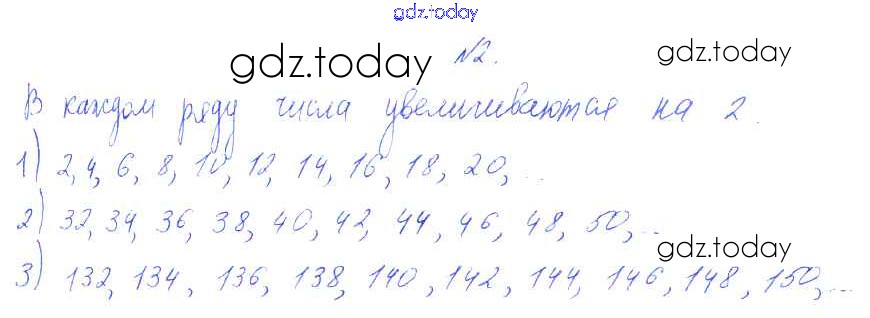 gdz.today
gdz.today №2. gdz.today
В каждом ряду числа увеличиваются на 2.
1) 2, 4, 6, 8, 10, 12, 14, 16, 18, 20, ...
2) 32, 34, 36, 38, 40, 42, 44, 46, 48, 50, ...
gdz.today
3) 132, 134, 136, 138, 140, 142, 144, 146, 148, 150, ...